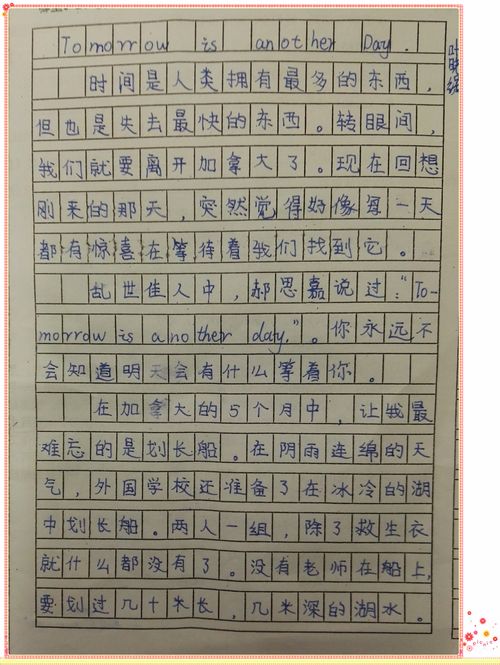 Tomorrow is another Day.
时间是人类拥有最多的东西，
但也是失去最快的东西。转眼间，
我们就要离开加拿大了。现在回想
刚来的那天，突然觉得好像每一天
都有惊喜在等待着我们找到它。
乱世佳人中，郝思嘉说过："To-
morrow is another day."。你永远不
会知道明天会有什么等着你。
在加拿大的5个月中，让我最
难忘的是划长船。在阴雨连绵的天
气，外国学校还准备了在冰冷的湖
中划长船。两人一组，除了救生衣
就什么都没有了。没有老师在船上，
要划过几十米长，几米深的湖水。